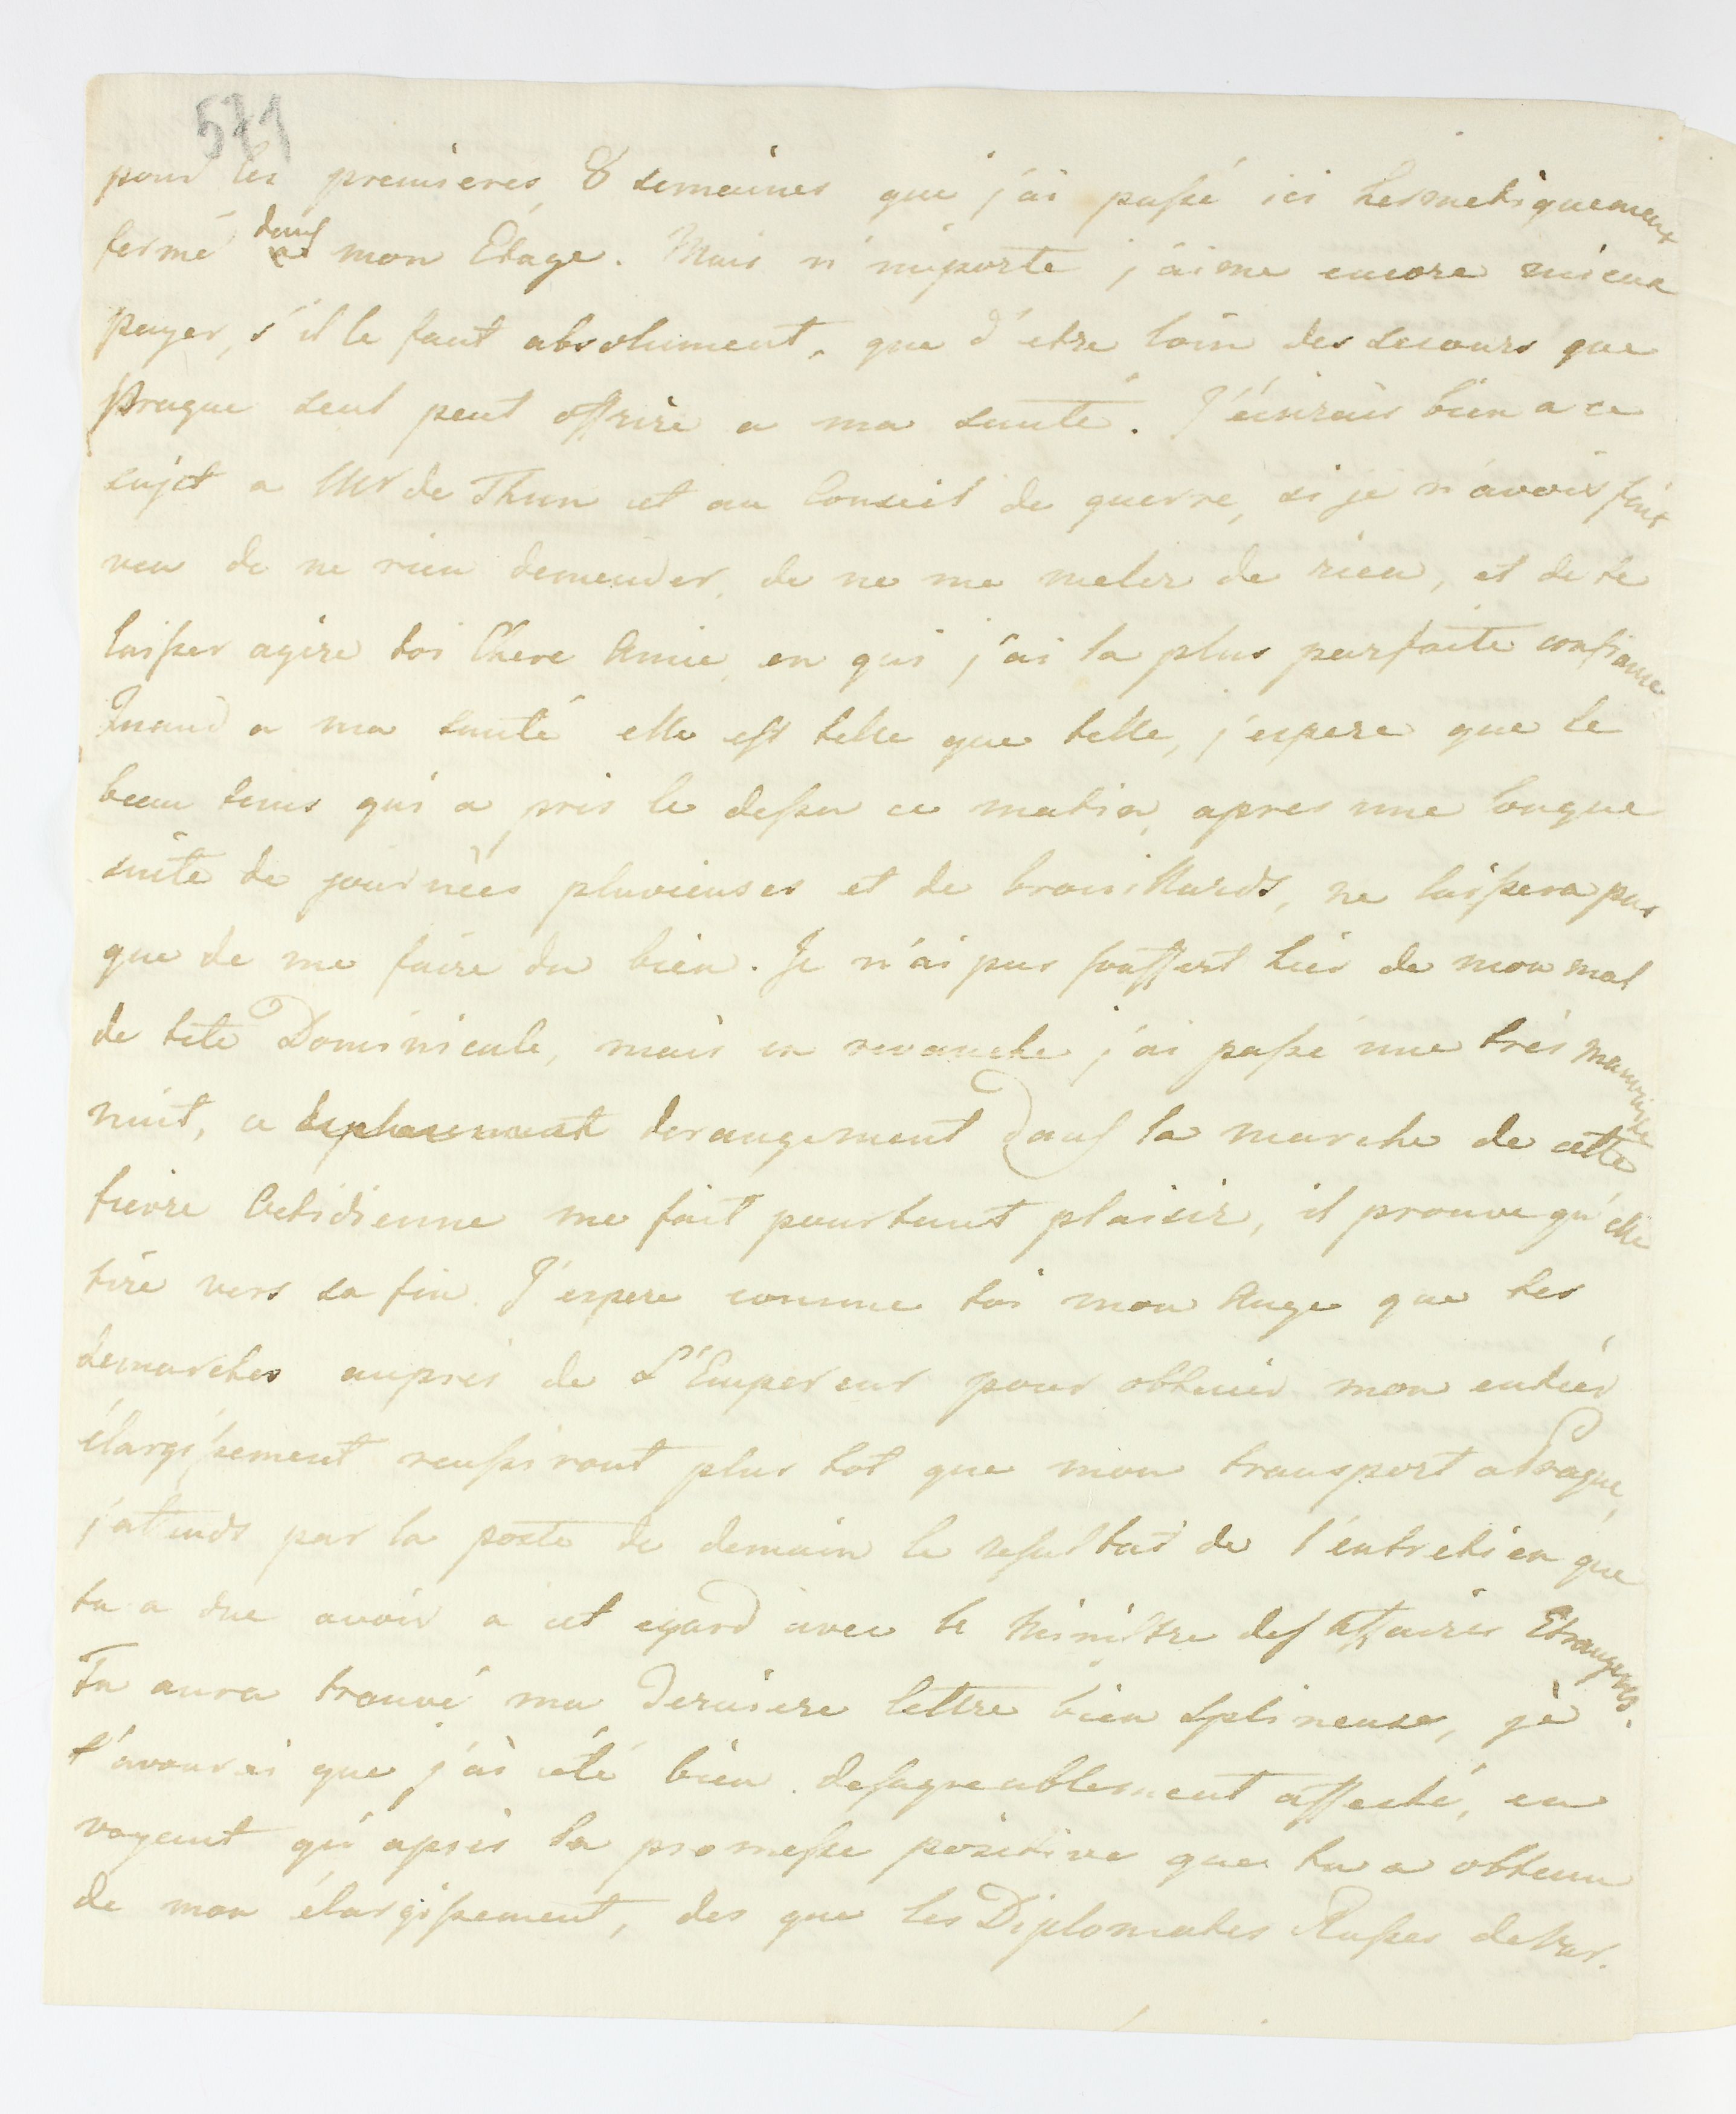 571
pour les premieres 8 semaines que j'ai passé ici hermetiquement
fermé dans mon Etage. Mais n'importe j'aime encore mieux
payer, s'il le faut absolument, que d'etre loin des secours que
Prague seul peut offrire a ma santé. J'écrirais bien a ce
sujet a Mr de Thun et au Conseil de guerre, si je n'avois fait
veu de ne rien demender, de ne me meler de rien, et de te
laisser agire toi Chere Amie, en qui j'ai la plus parfaite confiance
Quand a ma santé elle est telle que telle, j'espere que le
beau tems qui a pris le dessu ce matin, apres une longue
suite de journèes pluvieuses et de brouillards, ne laissera pas
que de me faire du bien. Je n'ai pas souffert hier de mon mal
de tete Dominicale, mais en revanche j'ai passé une très mauvaise
nuit, ce derangement dans la marche de cette
fievre me fait pourtant plaisir, il prouve qu'elle
tire vers sa fin. J'espere comme toi mon Ange que tes
demarches auprés de L'Empereur pour obtenir mon entier
élargissement reussiront plus tot que mon transport a Prague,
j'attends par la poste de demain le resultat de l'entretien que
tu a due avoir a cet egard avec le Ministre des Affaires Etrangeres.
Tu aura trouvé ma derniere lettre bien splineuse, je
t'avouerai que j'ai été bien desagreablement affecté, en
voyant qu'après la promesse positive que tu a obtenu
de mon élargissement, des que les Diplomates Russes